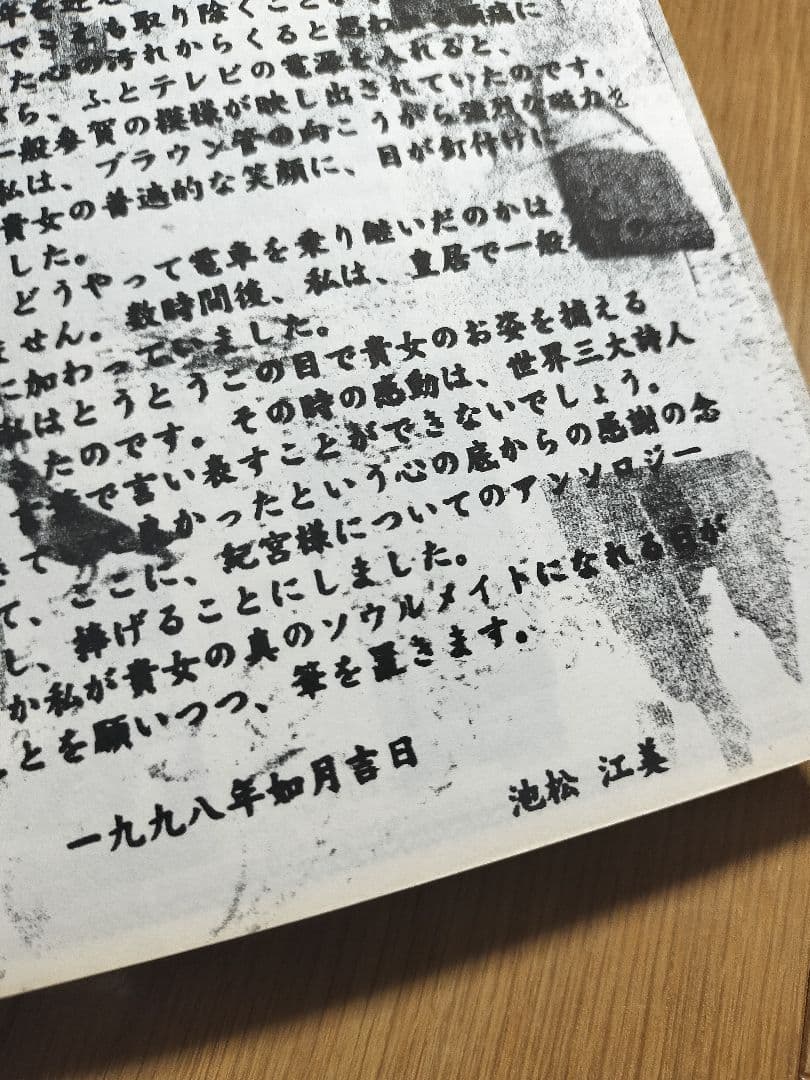 も取り除くこと
た心の汚れからくると思わ
ら、ふとテレビの電源を入れると、
一般参賀の模様が映し出されていたのです。
私は、ブラウン管の向こうから強烈な磁力を
貴女の普遍的な笑顔に、目が釘付けに
した。
どうやって電車を乗り継いだのかは
ません。数時間後、私は、皇居で一般
に加わっていました。
私はとうとうこの目で貴女のお姿を捕える
たのです。その時の感動は、世界三大詩人
で言い表すことができないでしょう。
きて 良かったという心の底からの感謝の念
て、ここに、紀宮様についてのアンソロジー
し、捧げることにしました。
か私が貴女の真のソウルメイトになれる日が
ことを願いつつ、筆を置きます。
一九九八年如月吉日
池松 江美